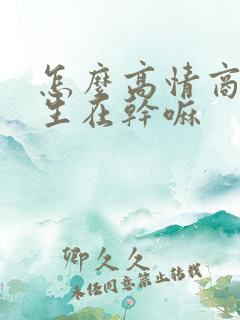 怎麼高情商
生在幹嘛
卿久久
未經同意禁止转载